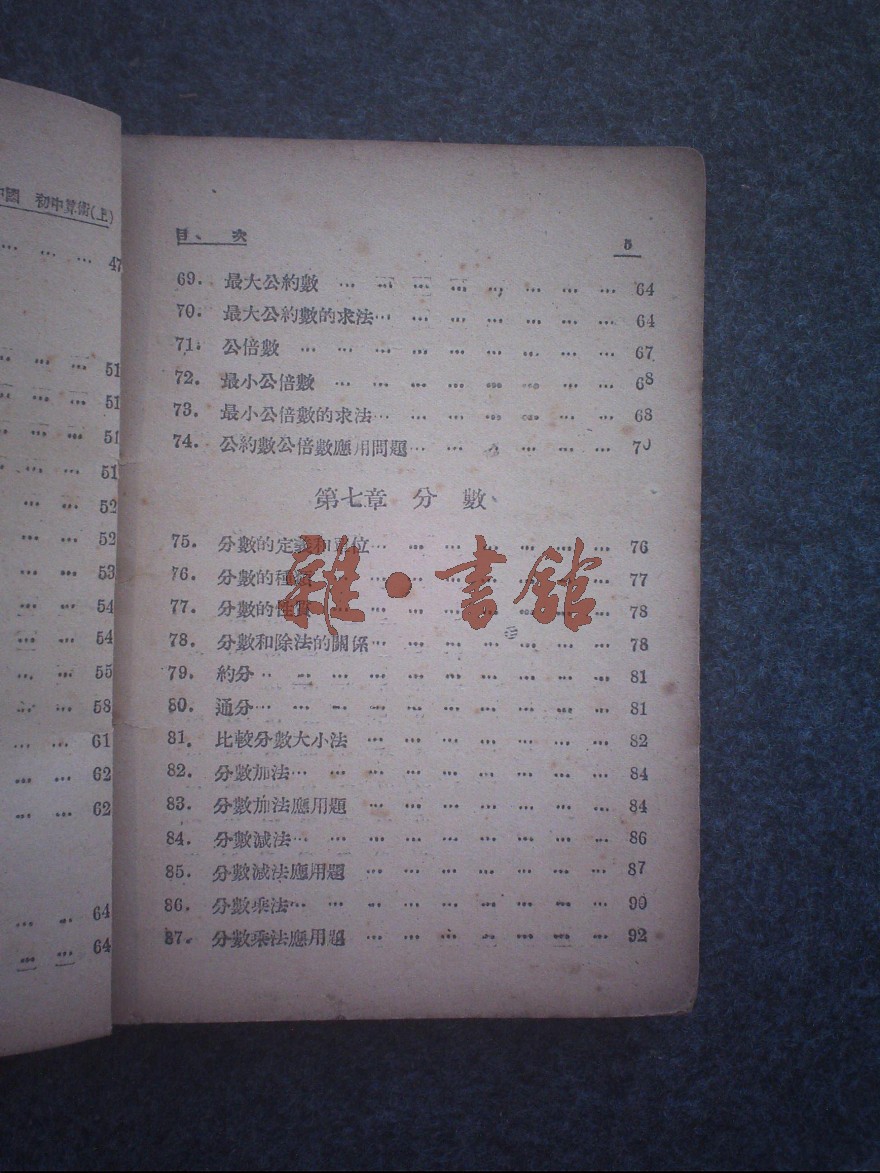 中國 初中算術(上)
… … … 47
… … … 51
… … … 51
… … … 51
… … … 51
… … … 52
… … … 52
… … … 53
… … … 54
… … … 54
… … … 55
… … … 58
… … … 61
… … … 62
… … … 62
… … … 64
… … … 64
目、次 5
69. 最大公約數 … … … … … … … … 64
70. 最大公約數的求法… … … … … … … 64
71. 公倍數 … … … … … … … … … 67
72. 最小公倍數 … … … … … … … … 68
73. 最小公倍數的求法… … … … … … … 68
74. 公約數公倍數應用問題… … … … … … 70
第七章 分 數
75. 分數的定義和單位… … … … … … … 76
76. 分數的種類 … … … … … … … … 77
77. 分數的性質 … … … … … … … … 78
78. 分數和除法的關係… … … … … … … 78
79. 約分… … … … … … … … … … 81
80. 通分… … … … … … … … … … 81
81. 比較分數大小法 … … … … … … … 82
82. 分數加法… … … … … … … … … 84
83. 分數加法應用題 … … … … … … … 84
84. 分數減法… … … … … … … … … 86
85. 分數減法應用題 … … … … … … … 87
86. 分數乘法… … … … … … … … … 90
87. 分數乘法應用題 … … … … … … … 92
雜·書館